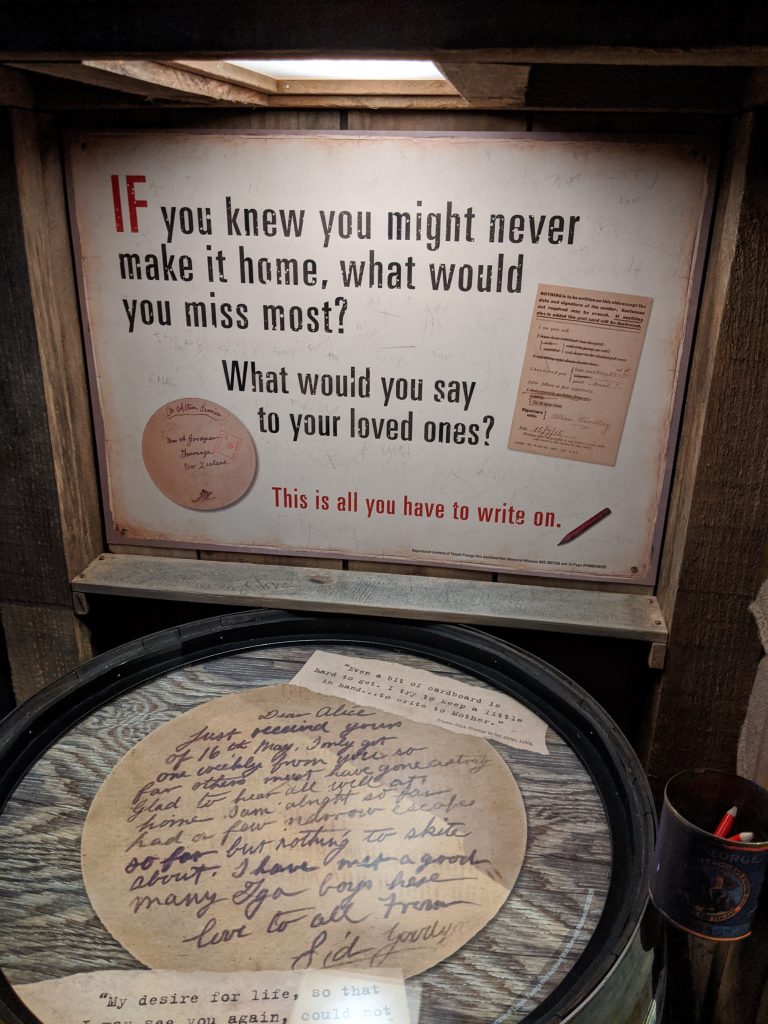 IF you knew you might never
make it home, what would
you miss most?
What would you say
to your loved ones?
This is all you have to write on.
NOTHING is to be written on this side except the
date and signature of the sender. Sentences
not required may be erased. If anything
else is added the post card will be destroyed.
I am quite well.
Letter follows at first opportunity.
Signature
only.
Date 15/7/15
On Active Service
Mrs A Goodyer
Tauranga
New Zealand
"Even a bit of cardboard is
hard to get. I try to keep a little
in hand...to write to Mother."
Dear Alice
Just received yours
of 16th May. I only got
one weekly from you so
far others must have gone astray
Glad to hear all well at
home I am alright so far
had a few narrow escapes
so far but nothing to skite
about. I have met a good
many Tga boys here
love to all From
Sid
"My desire for life, so that
I may see you again, could not
GEORGE